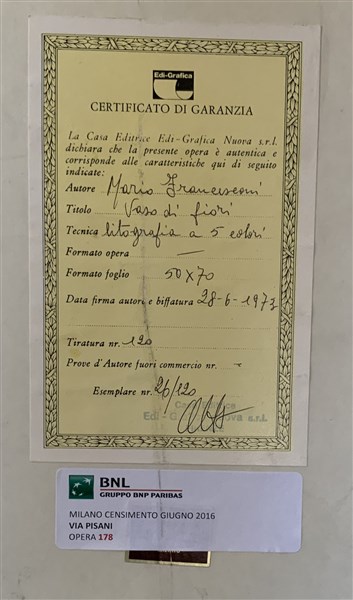 Edi-Grafica
CERTIFICATO DI GARANZIA
La Casa Editrice Edi-Grafica Nuova s.r.l.
dichiara che la presente opera è autentica e
corrisponde alle caratteristiche qui di seguito
indicate:
Autore Mario Francesconi
Titolo Vaso di fiori
Tecnica litografia a 5 colori
Formato opera —
Formato foglio 50x70
Data firma autore e biffatura 28-6-1973
Tiratura nr. 120
Prove d'Autore fuori commercio nr. -
Esemplare nr. 20/120
Casa Editrice
Edi - Nuova s.r.l.
BNL
GRUPPO BNP PARIBAS
MILANO CENSIMENTO GIUGNO 2016
VIA PISANI
OPERA 178